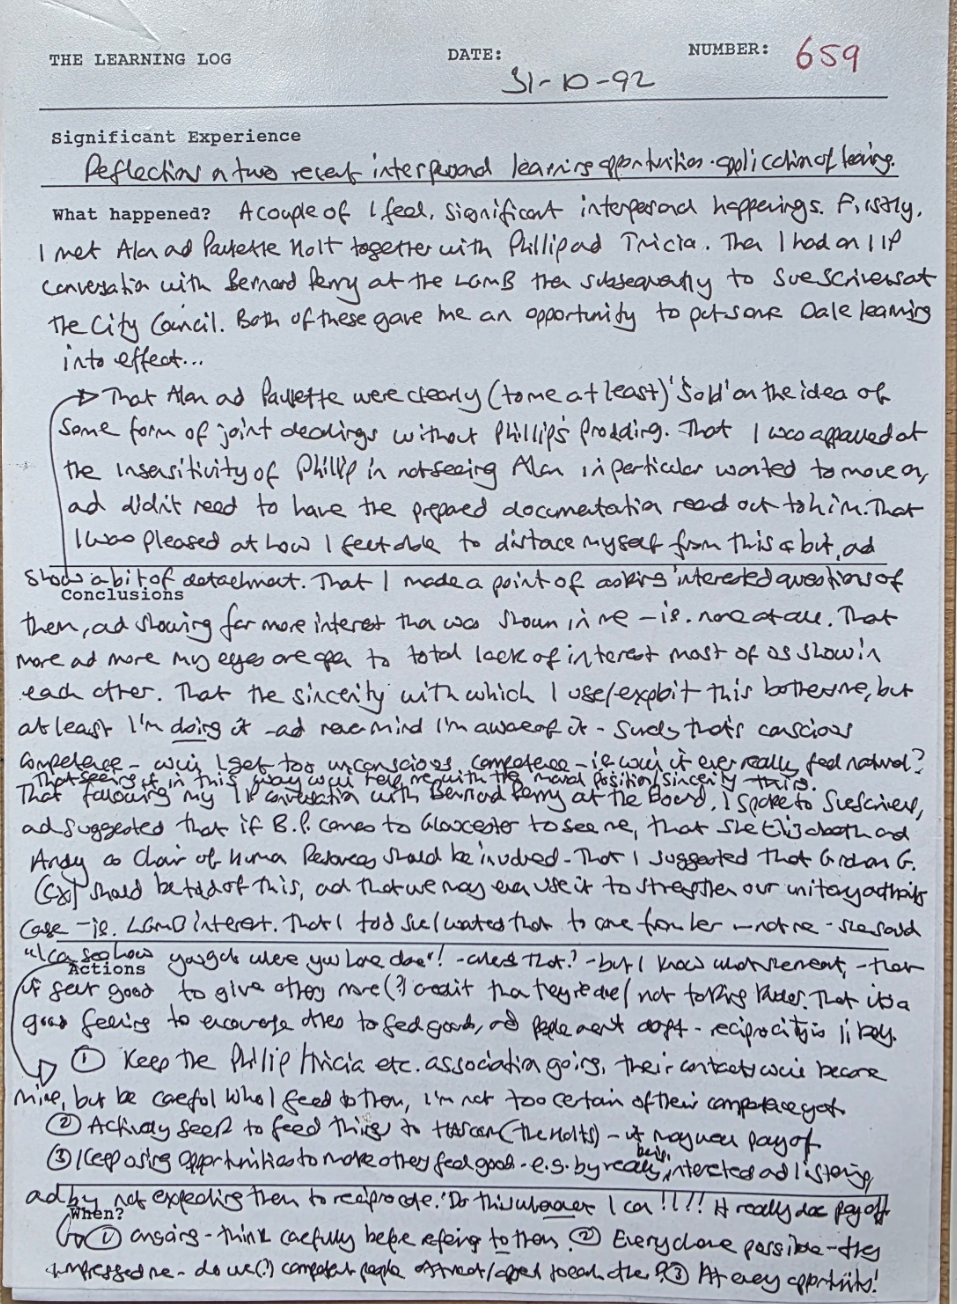 THE LEARNING LOG DATE: 31-10-92 NUMBER: 659
Significant Experience
Reflections on two recent interpersonal learning opportunities - application of learning.
What happened? A couple of I feel, significant interpersonal happenings. Firstly,
I met Alan ad Paulette Holt together with Phillip ad Tricia. Then I had an IIP
conversation with Bernard Perry at the LGMB then subsequently to Sue Scrivens at
the City Council. Both of these gave me an opportunity to put some Dale learning
into effect...
That Alan ad Paulette were clearly (to me at least) 'Sold' on the idea of
Some form of joint dealings without Phillip's prodding. That I was appalled at
the insensitivity of Phillip in not seeing Alan in particular wanted to move on,
ad didn't need to have the prepared documentation read out to him. That
I was pleased at how I felt able to distance myself from this a bit, ad
show a bit of detachment. That I made a point of asking 'interested questions of
Conclusions
them, ad showing far more interest than was shown in me - ie. none at all. That
more ad more my eyes are open to total lack of interest most of us show in
each other. That the sincerity with which I use/exploit this bothers me, but
at least I'm doing it - ad never mind I'm aware of it - surely that's conscious
competence - will I get to unconscious competence - ie will it ever really feel natural?
That seeing it in this way will help me with the moral position/sincerity thing.
That following my IIP conversation with Bernard Perry at the Board, I spoke to Sue Scrivens,
ad suggested that if B.P. comes to Gloucester to see me, that she Elizabeth and
Andy as Chair of Human Resources should be involved - That I suggested that Gordon G.
(CX) should be told of this, ad that we may even use it to strengthen our unitary authority
case - ie. LGMB interest. That I told Sue I wanted that to come from her - not me - she said
"I can see how you got where you have done"! - what's that? - but I know what she meant, - that
Actions
it felt good to give others more (?) credit than they're due/not taking kudos. That its a
good feeling to encourage others to feel good, ad people aren't daft - reciprocity is likely.
① Keep the Phillip/Tricia etc. association going, their contacts will become
mine, but be careful who I feed to them, I'm not too certain of their competence yet
② Actively seek to feed things to (The Holts) - it may well pay off
③ Keep using opportunities to make others feel good - e.g. by really being interested ad listening,
ad by not expecting them to reciprocate. 'Do this whenever I can!!!! It really does pay off
When?
① ongoing - think carefully before referring to them. ② Every chance possible - they
impressed me - do we (?) competent people attract/appeal to each other? ③ At every opportunity!